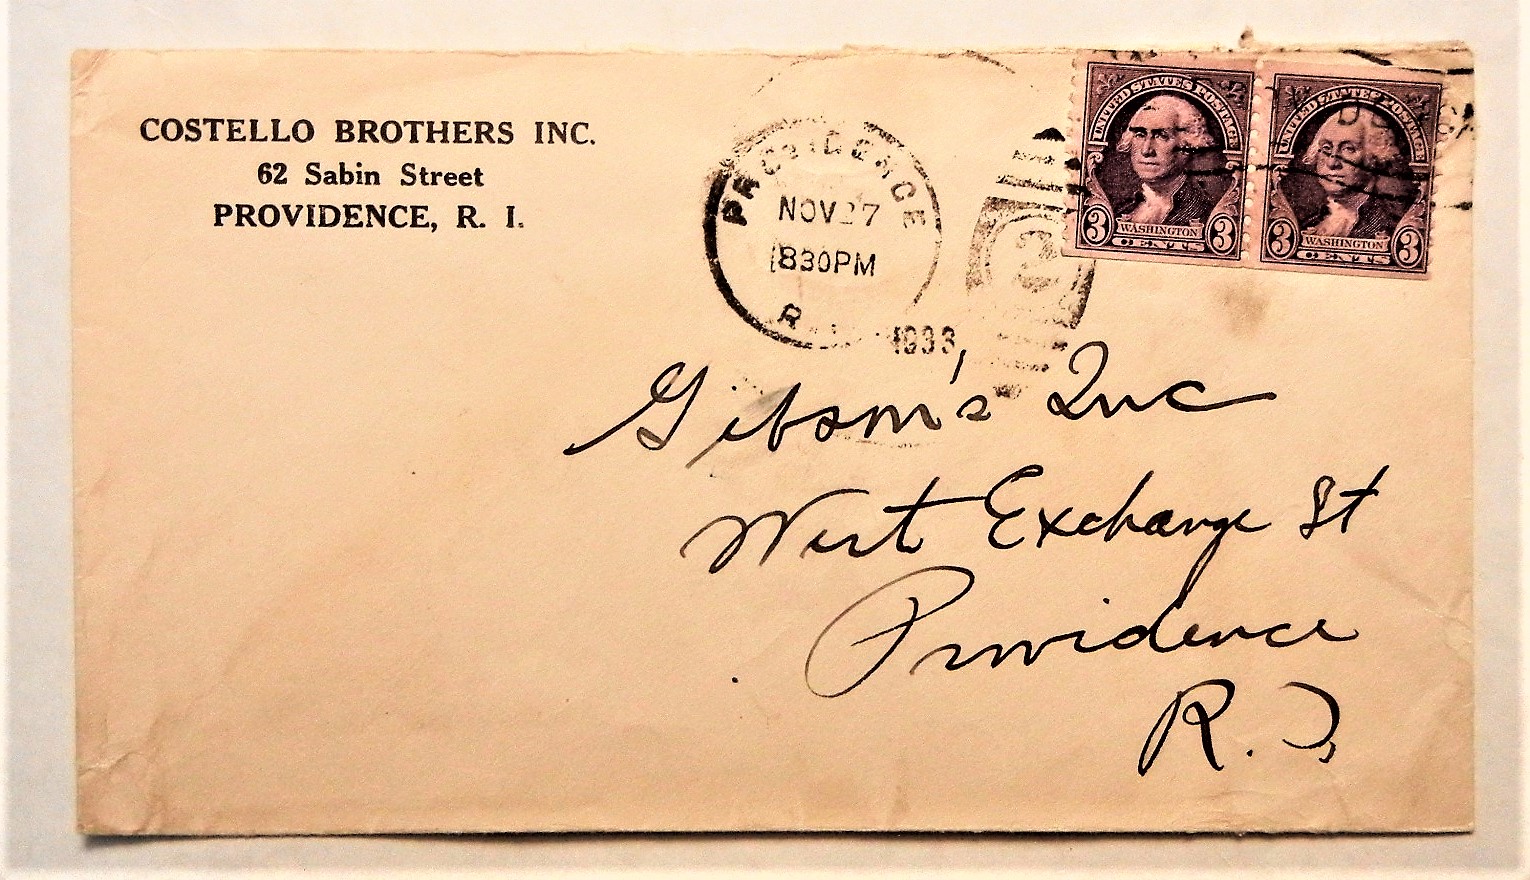 COSTELLO BROTHERS INC.
62 Sabin Street
PROVIDENCE, R. I.
PROVIDENCE
NOV 27
830PM
R. I.
1933
2
UNITED STATES POSTAGE
3 WASHINGTON 3
CENTS
UNITED STATES POSTAGE
3 WASHINGTON 3
CENTS
Gibson's Inc
West Exchange St
Providence
R. I.